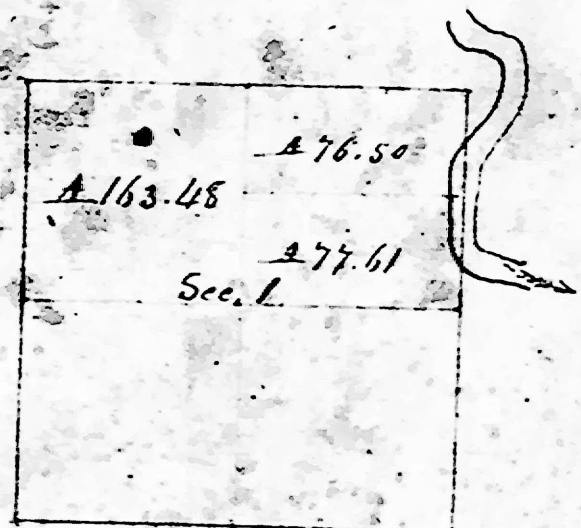 A 76.50
A 163.48
A 77.61
Sec. 1